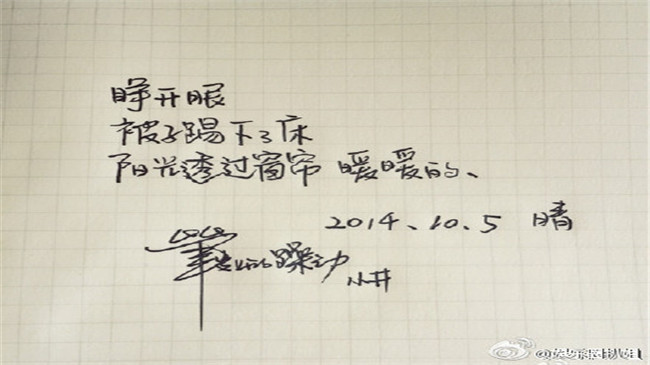 睁开眼
被子踢下了床
阳光透过窗帘 暖暖的、
2014、10、5 晴
的躁动
小井